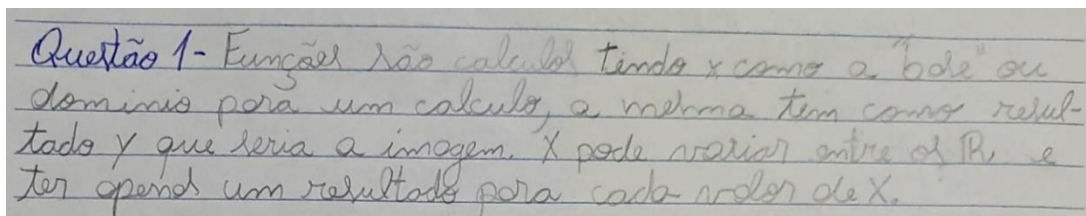 Questão 1- Funções são calculos tendo x como a "base" ou
dominio para um calculo, a mesma tem como resul-
tado y que seria a imagem. X pode variar entre os R, e
ter apenas um resultado para cada valor de X.